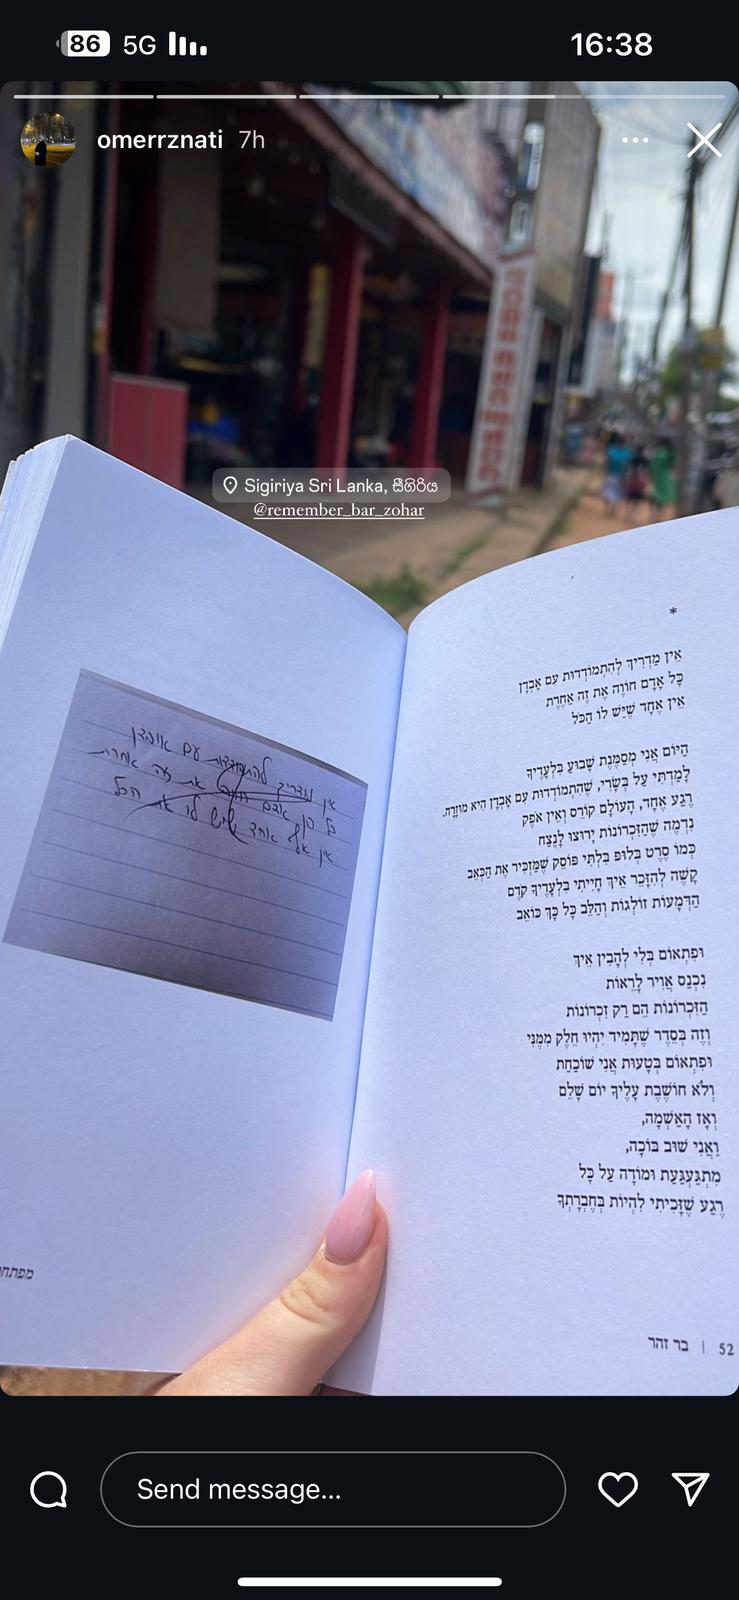 86 5G 16:38
omerrznati 7h
Sigiriya Sri Lanka, සීගිරිය
@remember_bar_zohar
*
אֵין מַדְרִיךְ לְהִתְמוֹדְדוּת עִם אָבְדָן
כָּל אָדָם חוֹוֶה אֶת זֶה אַחֶרֶת
אֵין אֶחָד שֶׁיֵּשׁ לוֹ הַכֹּל
הַיּוֹם אֲנִי מְסַמֶּנֶת שָׁבוּעַ בִּלְעָדֶיךָ
לָמַדְתִּי עַל בְּשָׂרִי, שֶׁהִתְמוֹדְדוּת עִם אָבְדָן הִיא מוּזָרָה.
רֶגַע אֶחָד, הָעוֹלָם קוֹרֵס וְאֵין אֹפֶק
נִדְמֶה שֶׁהַזִּכְרוֹנוֹת יָרוּצוּ לָנֶצַח
כְּמוֹ סֶרֶט בְּלוּפּ בִּלְתִּי פּוֹסֵק שֶׁמַּזְכִּיר אֶת הַכְּאֵב
קָשֶׁה לְהִזָּכֵר אֵיךְ חָיִיתִי בִּלְעָדֶיךָ קֹדֶם
הַדְּמָעוֹת זוֹלְגוֹת וְהַלֵּב כָּל כָּךְ כּוֹאֵב
וּפִתְאוֹם בְּלִי לְהָבִין אֵיךְ
נִכְנַס אֲוִיר לָרֵאוֹת
הַזִּכְרוֹנוֹת הֵם רַק זִכְרוֹנוֹת
וְזֶה בְּסֵדֶר שֶׁתָּמִיד יִהְיוּ חֵלֶק מִמֶּנִּי
וּפִתְאוֹם בְּטָעוּת אֲנִי שׁוֹכַחַת
וְלֹא חוֹשֶׁבֶת עָלֶיךָ יוֹם שָׁלֵם
וְאָז הָאַשְׁמָה,
וַאֲנִי שׁוּב בּוֹכָה,
מִתְגַּעְגַּעַת וּמוֹדָה עַל כָּל
רֶגַע שֶׁזָּכִיתִי לִהְיוֹת בְּחֶבְרָתְךָ
52 | בר זהר
אין מדריך להתמודדות עם אובדן
כל אדם חווה את זה אחרת
אין אף אחד שיש לו את הכל
Send message...